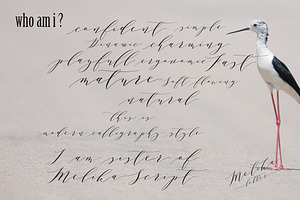 who am i ?
confident simple
Dinamic charming
playfull ergonomic fast
mature soft flowing
natural
this is
modern calligraphy style
I am sister of
Meliha Script
Meliha
letter